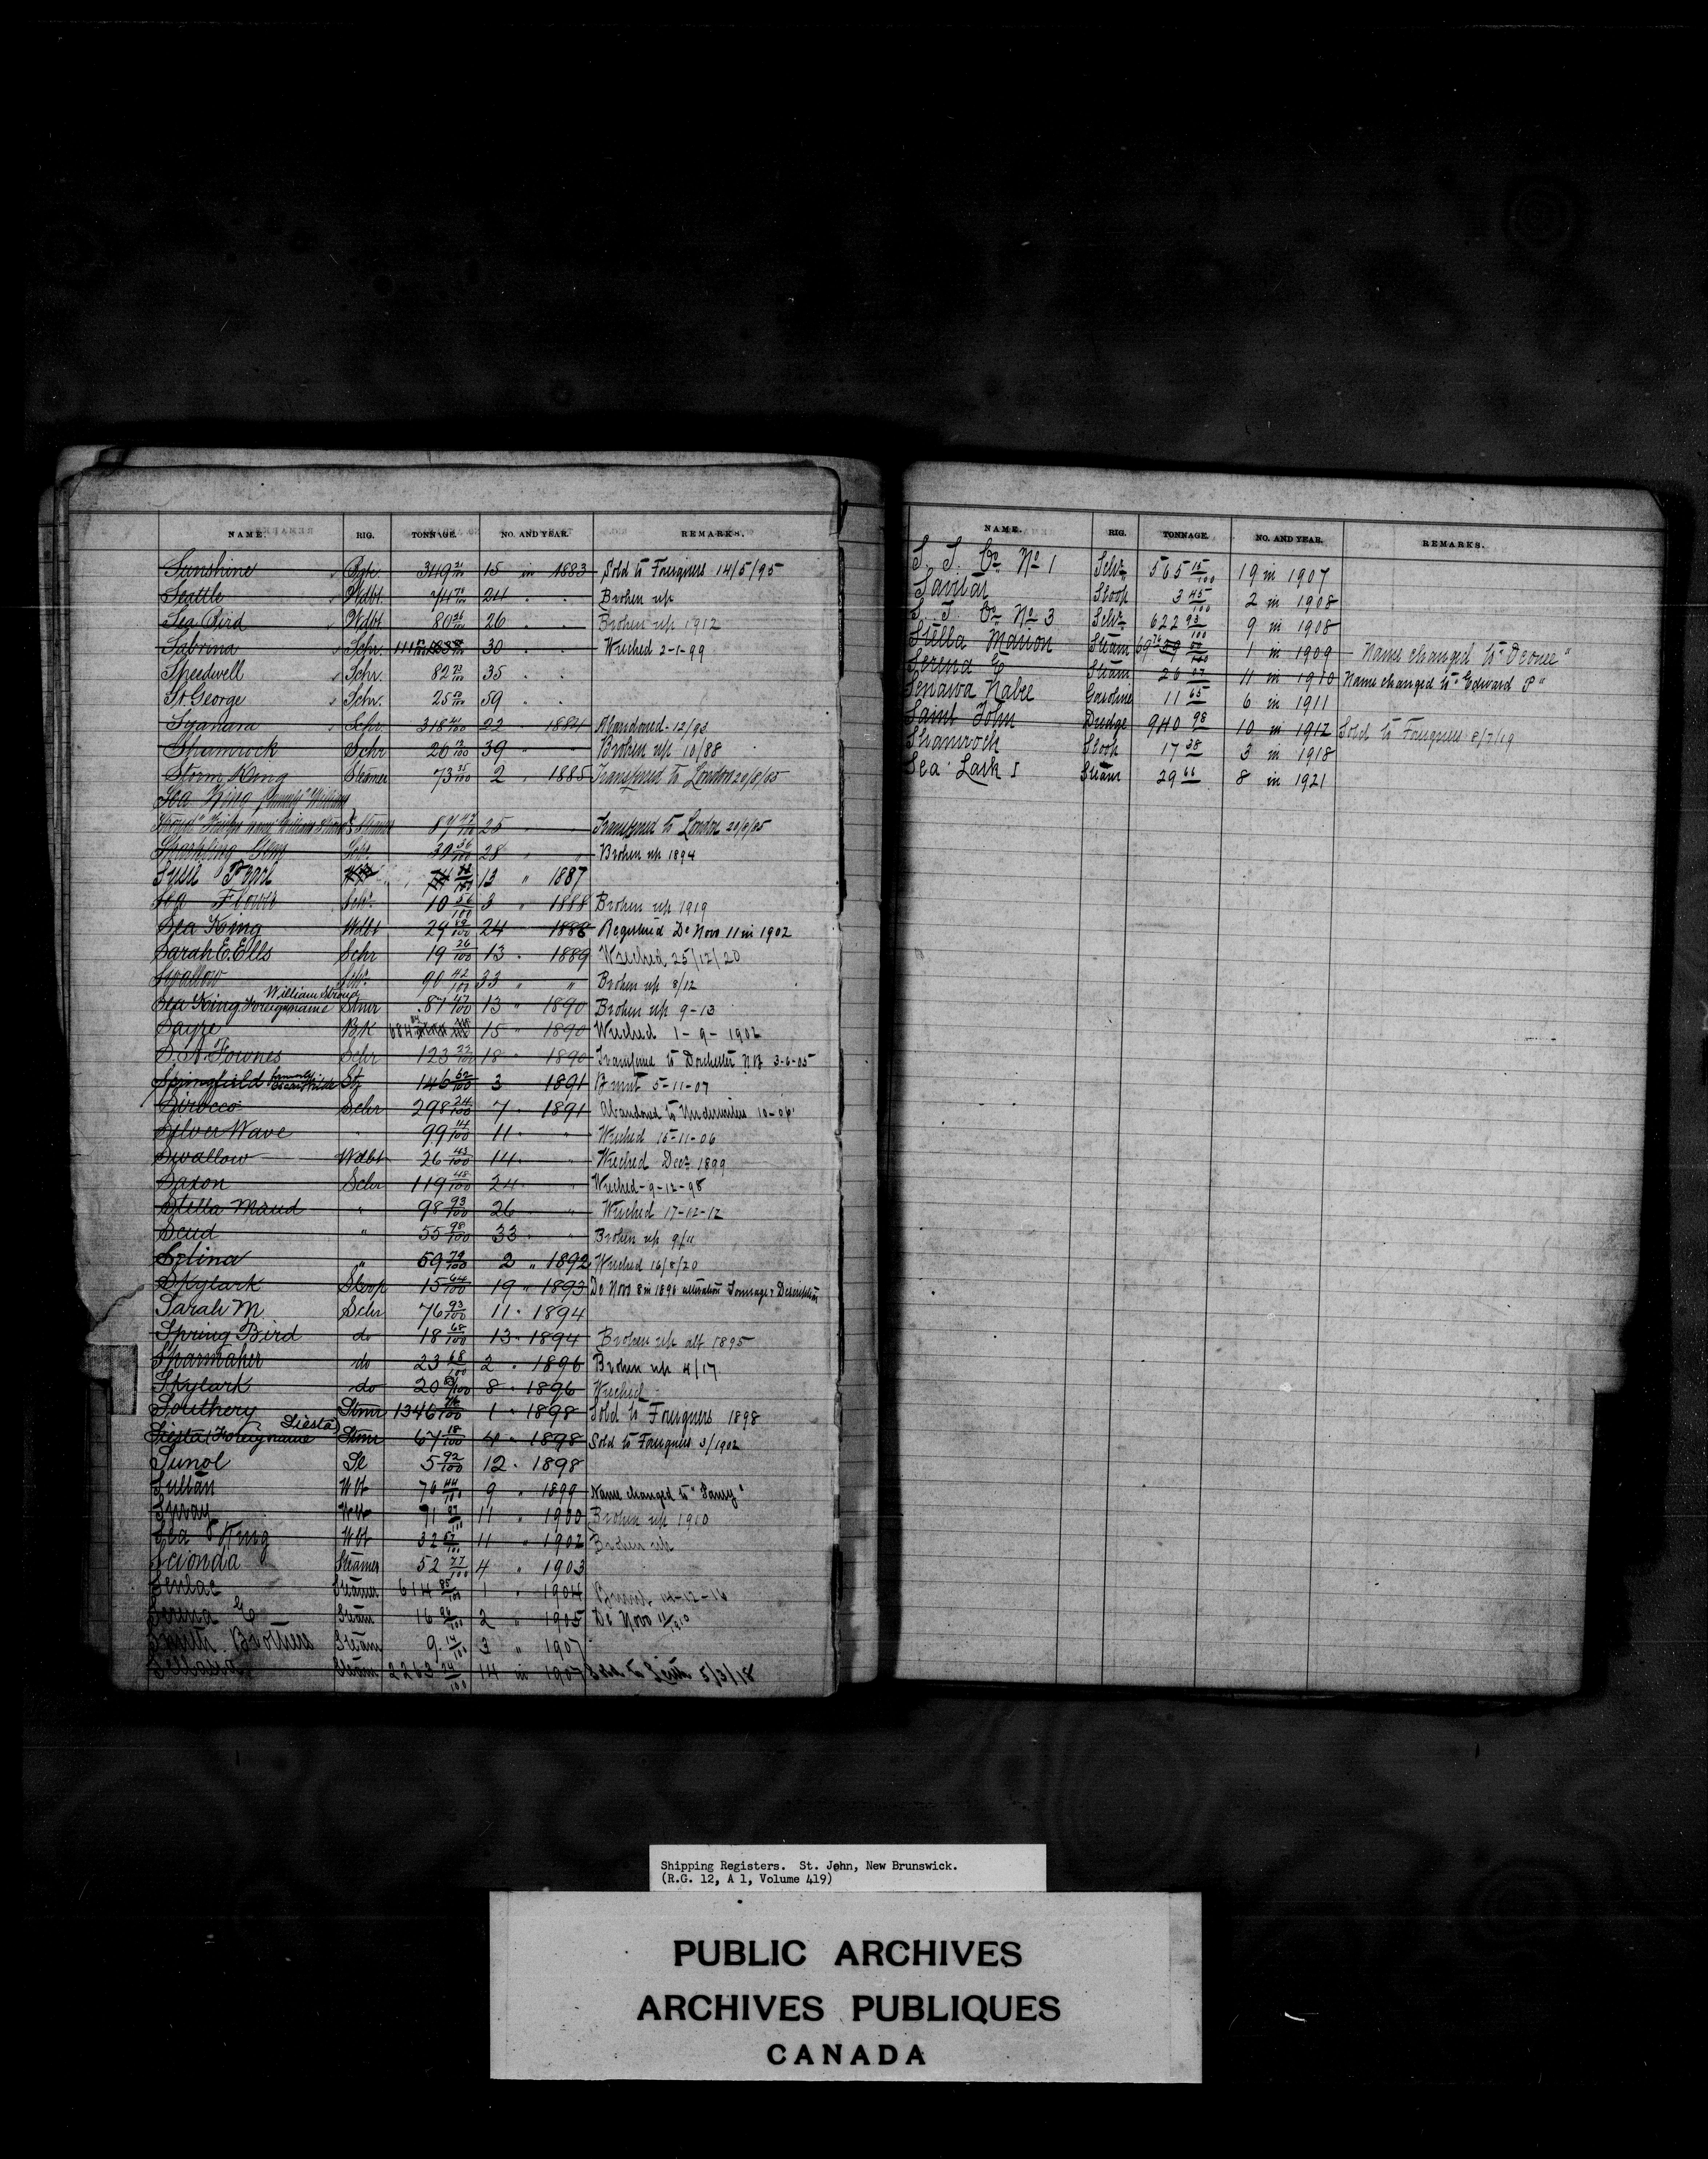 NAME. RIG. TONNAGE. NO. AND YEAR. REMARKS.
Sunshine Bgk. 349 15 in 1883 Sold to Foreigners 14/5/95
Seattle Wdbt. 24 " " Broken up
Sea Bird Wdbt. 80 26 " " Broken up 1912
Sabrina Schr. 30 " " Wrecked 2-1-99
Speedwell Schr. 82 35 " "
St. George Schr. 25 59 "
Schr. 318 22 " 1884 Abandoned 12/93
Shamrock Schr 26 39 " " Broken up 10/88
Storm King Steamer 73 35/100 2 " 1885 Transferred to London 20/8/85
Sea King formerly "William
Stroud" Foreign name William Stroud Steamer 87 47/100 25 " " Transferred to London 20/8/85
Sparkling Gem Schr. 30 56/100 28 " " Broken up 1894
Pearl 13 " 1887
Sea Flower Schr. 10 56/100 3 " 1888 Broken up 1919
Sea King Wdbt 29 69/100 24 " 1888 Registered De Novo 11 in 1902
Sarah E. Ells Schr 19 26/100 13 " 1889 Wrecked 25/12/20
Swallow Schr. 90 42/100 33 " " Broken up 8/12
William Stroud
Sea King Foreign name Stmr 87 47/100 13 " 1890 Broken up 9-13
Sayre Bk 15 " 1890 Wrecked 1-9-1902
S. A. Fownes Schr 123 18 " 1890 Transferred to Dorchester N.B. 3-6-05
Springfield formerly St 146 62/100 3 1891 Burnt 5-11-07
Sirocco Schr 298 24/100 7 " 1891 Abandoned to Underwriters 10-06
Silver Wave " 99 14/100 11 " " Wrecked 15-11-06
Swallow Wdbt 26 43/100 14 " " Wrecked Decr 1899
Saxon Schr 119 48/100 24 " " Wrecked-9-12-98
Stella Maud " 98 93/100 26 " " Wrecked 17-12-12
Scud " 55 98/100 33 " " Broken up 9/11
Selina " 59 79/100 2 " 1892 Wrecked 16/8/20
Skylark Sloop 15 64/100 19 " 1893 De Novo 8 in 1896 alteration Tonnage & Description
Sarah M Schr 76 93/100 11 " 1894
Spring Bird do 18 68/100 13 " 1894 Broken up alt 1895
Sparmaker do 23 68/100 2 " 1896 Broken up 4/17
Skylark do 20 8 " 1896 Wrecked
Southery Stmr 1346 1 " 1898 Sold to Foreigners 1898
Siesta (Foreign name Siesta) Stmr 67 18/100 4 " 1898 Sold to Foreigners 3/1902
Sunol Sl 5 92/100 12 " 1898
Sultan Wbt 76 44/100 9 " 1899 Name changed to
Swan Wbt 91 11 " 1900 Broken up 1910
Sea King Wbt 32 11 " 1902 Broken up
Scionda Steamer 52 77/100 4 " 1903
Senlac Steamer 614 1 " 1904 Burnt 14-12-16
Serena E Steam 16 2 " 1905 De Novo 11/1910
Smith Brothers Steam 9 14/100 3 " 1907
Steam 2263 14 in 1907 Sold to Leith 5/3/18
NAME. RIG. TONNAGE. NO. AND YEAR. REMARKS.
S. T. Co. No 1 Schr. 565 15/100 19 in 1907
Savitar Sloop 3 45/100 2 in 1908
S T. Co. No. 3 Schr. 622 93/100 9 in 1908
Stella Marion Steam 1 in 1909 Name changed to
Serena E Steam 26 11 in 1910 Name changed to "Edward P"
Senawa Nabee Gasoline 11 65 6 in 1911
Saint John Dredge 940 98 10 in 1912 Sold to Foreigners 8/7/19
Shamrock Sloop 17 38 3 in 1918
Sea Lark I Steam 29 66 8 in 1921
Shipping Registers. St. John, New Brunswick.
(R.G. 12, A 1, Volume 419)
PUBLIC ARCHIVES
ARCHIVES PUBLIQUES
CANADA